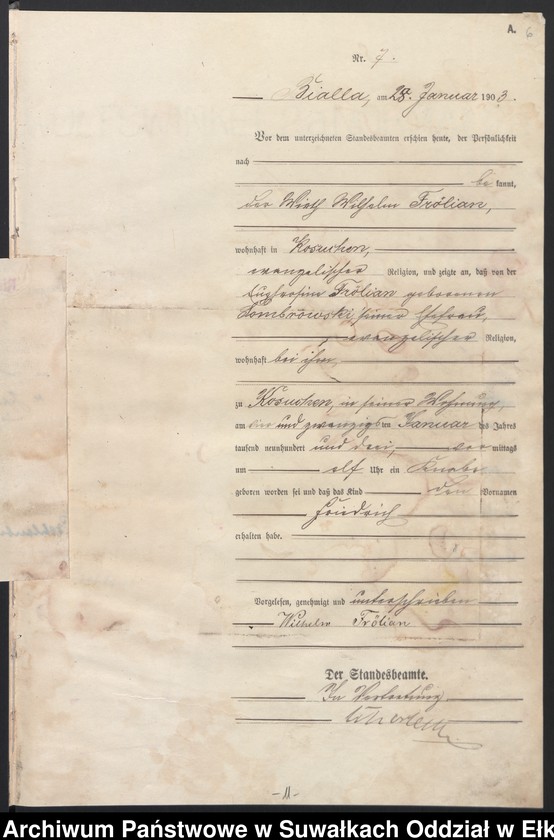 A. 6
Nr. 7.
Bialla, am 28. Januar 1903.
Vor dem unterzeichneten Standesbeamten erschien heute, der Persönlichkeit
nach
be kannt,
der Wirth Wilhelm Frölian,
wohnhaft in Kosuchen,
evangelischer Religion, und zeigte an, daß von der
Frölian geborenen
Dombrowski, seiner Ehefrau,
evangelischer Religion,
wohnhaft bei ihm,
zu Kosuchen, in seiner Wohnung,
am und zwanzigsten Januar des Jahres
tausend neunhundert und drei, vor mittags
um elf Uhr ein Knabe
geboren worden sei und daß das Kind den Vornamen
Friedrich
erhalten habe.
Vorgelesen, genehmigt und unterschrieben
Wilhelm Frölian
Der Standesbeamte.
In Vertretung
- 11 -
Archiwum Państwowe w Suwałkach Oddział w Ełk